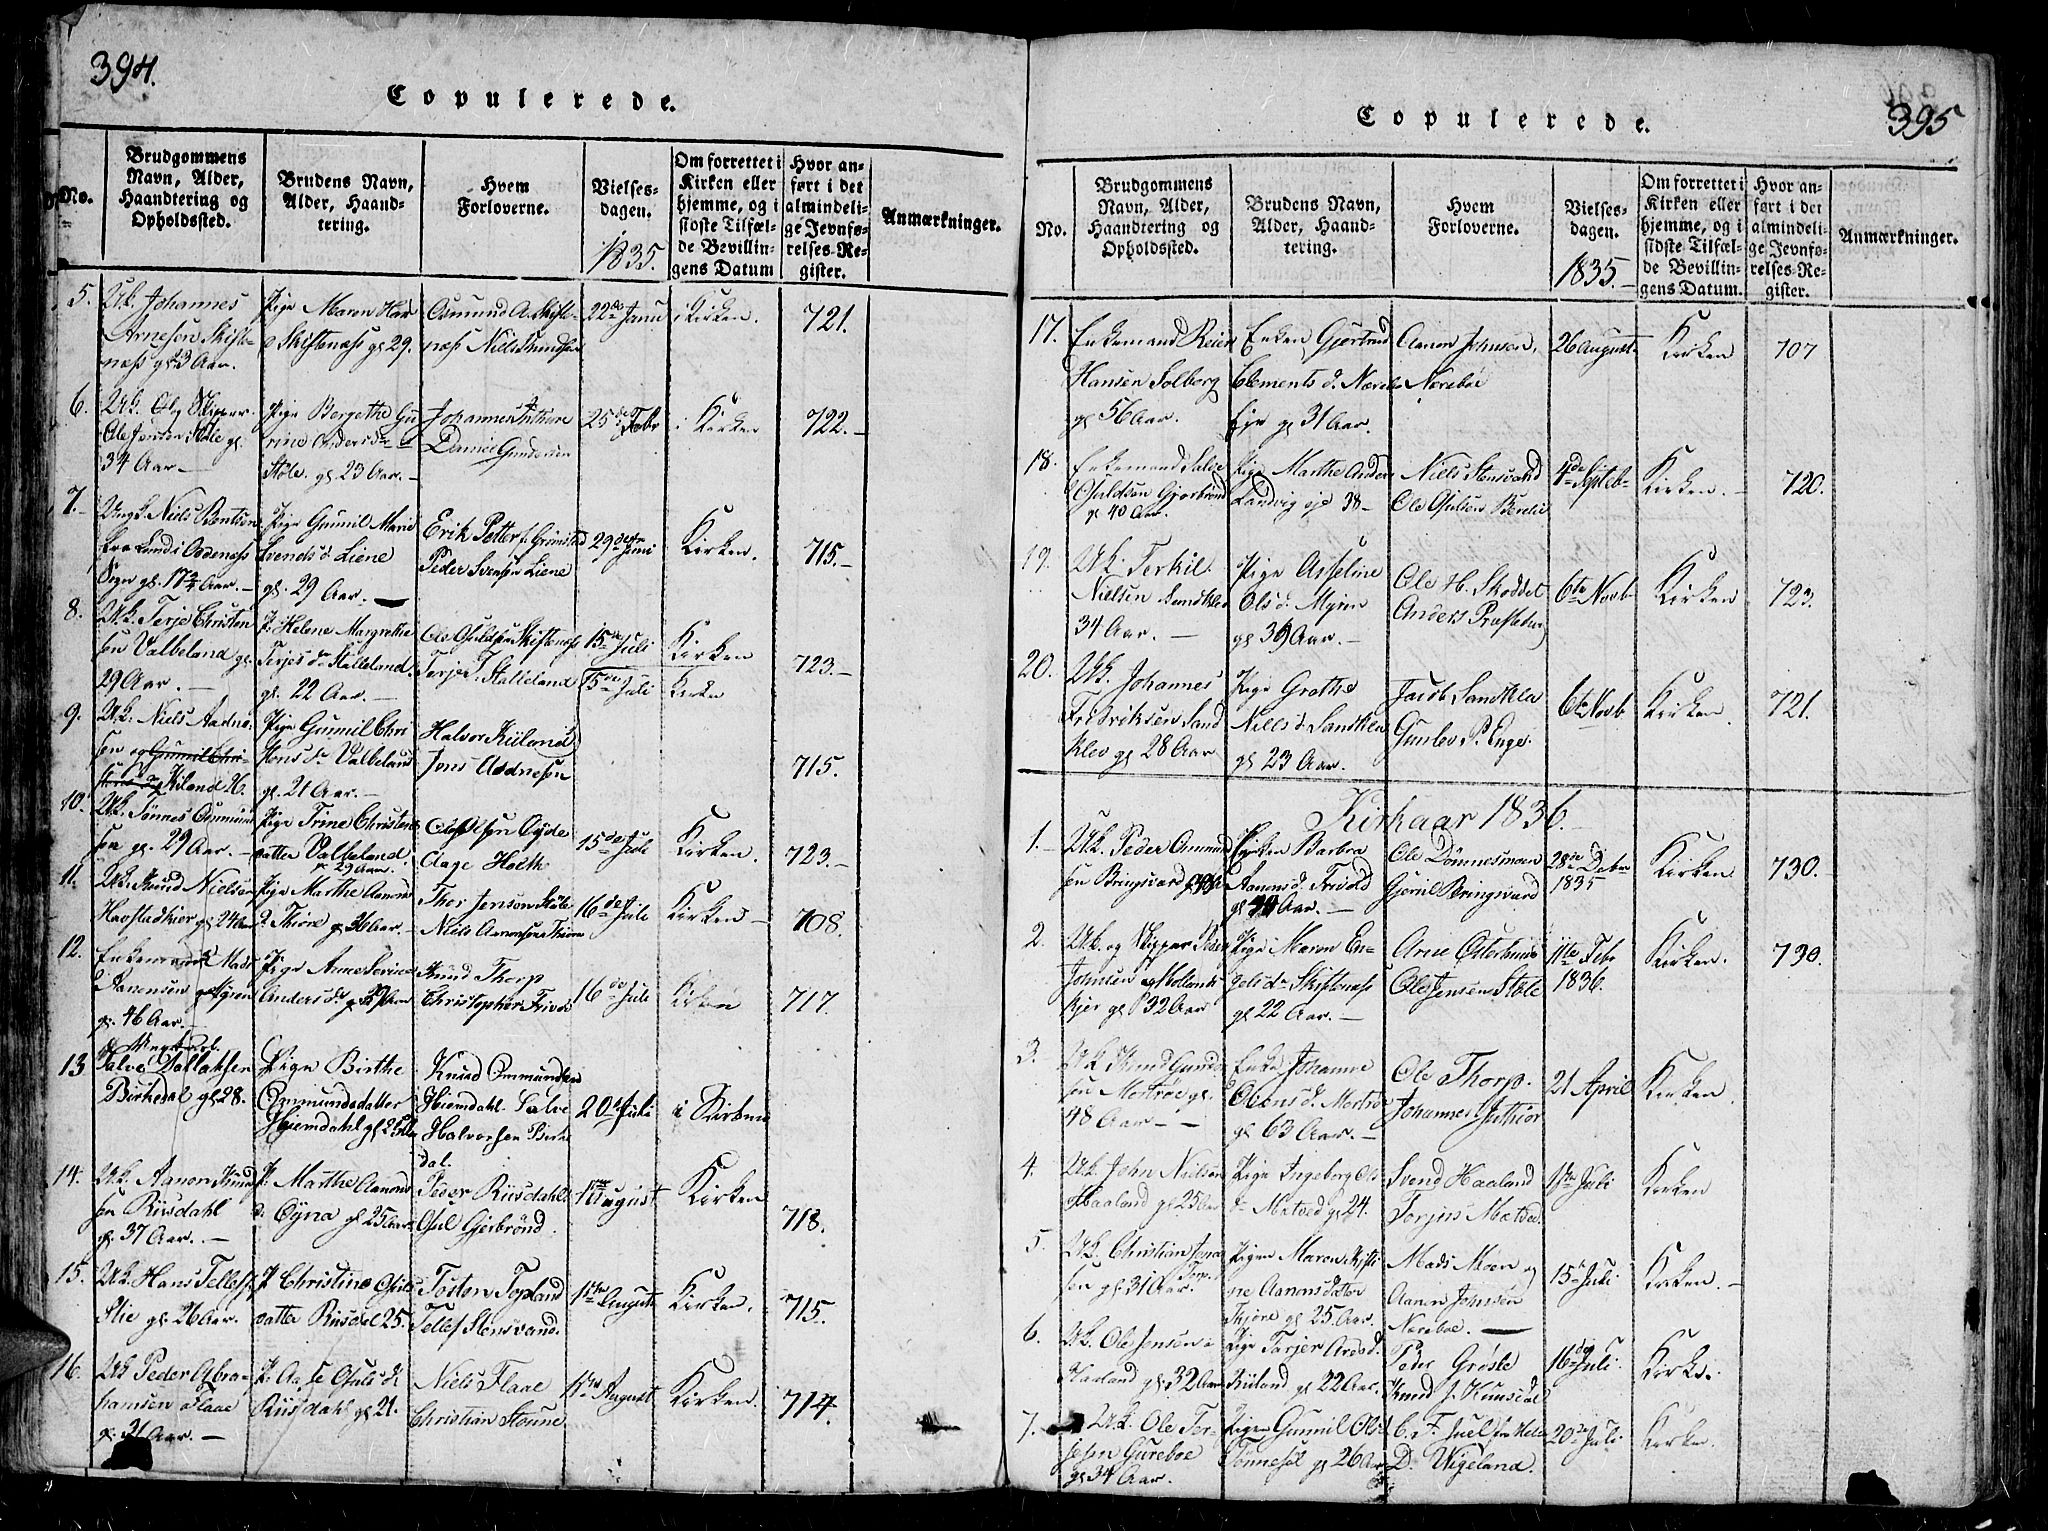 394.
Copulerede.
No.
Brudgommens
Navn, Alder,
Haandtering og
Opholdssted.
Brudens Navn,
Alder, Haand-
tering.
Hvem
Forloverne.
Vielses-
dagen.
1835.
Om forrettet i
Kirken eller
hjemme, og i
sidste Tilfæl-
de Bevillin-
gens Datum
Hvor an-
ført i det
almindeli-
ge Jevnfø-
relses-Re-
gister.
Anmærkninger.
5.
Uk. Johannes
Arnesen Skifte-
næs gl 23 Aar.
Pige Maren
Skiftenæs gl 29.
Osmund A. Skifte-
næs
22de Janu
i Kirken.
721.
6.
Uk. og Skipper
gl.
34 Aar
Pige Bergethe Gu
rine Andersdr
Støle. gl. 23 Aar.
Johannes
Daniel Gundersen
25de Febr
i Kirken
722.
7.
Ungk. Niels Bentsen
fra Lund i Oddernæs
Sogn gl. Aar.
Pige Gunnil Marie
Svends d. Liene
gl. 29 Aar.
Erik Petter f. Grimstad
Peder Svensen Liene
29de Juni
Kirken.
715.
8.
Uk. Terje Christen
sen Valbeland gl.
29 Aar.
P. Helene Margrethe
Terjes dr Stalleland.
gl. 22 Aar.
Ole Skiftenæs
Terje T. Stalleland
15de Juli
Kirken
723.
9.
Uk. Niels Aadne
sen og Gunnil Chri
Kiland 26.
Pige Gunnil Chri
stens dr Valbeland
gl. 21 Aar.
Halvor Kiland
Jens Aadnesen
15de Juli
Kirken
715.
10.
Uk. Tønnes Ommund
sen gl. 29 Aar.
Pige Trine Christens
datter Valbeland.
gl 29 Aar.
Olsen Øyde
Aage Holte
15de Juli
Kirken.
723.
11.
Uk. Knud Nielsen
Havstadkier gl 24 Aar
Pige Marthe Aanons
d. Thiore gl 26 Aar.
Thor Jensen Støle
Niels Aanonsen Thiore
16de Juli
Kirken
708.
12.
Enkemand Mads
Aanensen Myren
gl. 46 Aar.
Pige Anne
Anders dr gl 29 Aar
Knud Thorp
Christopher Frivold
16de Juli
Kirken
717.
13
Ungkarl.
Salve
Birkedal gl 28.
Pige Birthe
Ommundsdatter
Hiemdahl gl 25 Aar
Knud Ommundsen
Hiemdahl. Salve
Halvorsen Birke
dal.
20de Juli
i Kirken
14.
Uk. Aanon Knud
sen Riisdahl
gl. 37 Aar.
P. Marthe Aanons
d. Øyna gl 25 Aar
Peder Riisdahl
Gierbrønd.
1ste August
Kirken
718.
15.
Uk. Hans Tellefs
Slie gl 26 Aar.
P. Christine
datter Riisdal 25.
Tosten Topland
Tellef Stensvand.
1ste August
Kirken.
715.
16.
Uk Peder Abra-
hamsen Flaae
gl. 31 Aar.
P.
Riisdahl gl 21.
Niels Flaae
Christian
1ste August
Kirken.
714.
395
Copulerede.
No.
Brudgommens
Navn, Alder,
Haandtering og
Opholdssted.
Brudens Navn,
Alder, Haand-
tering.
Hvem
Forloverne.
Vielses-
dagen.
1835.
Om forrettet i
Kirken eller
hjemme, og i
sidste Tilfæl-
de Bevillin-
gens Datum.
Hvor an-
ført i det
almindeli-
ge Jevnfø-
relses-Re-
gister.
Anmærkninger.
17.
Enkemand Reier
Hansen Solborg
gl 56 Aar.
Enken Gjertrud
Clements d. Nærebø
Eje gl 31 Aar.
Aanon Johnsen,
Nærebøe
26 August
Kirken
707
18.
Enkemand Salve
Gjerbrønd
gl 40 Aar.
Pige Marthe Anders
Landvig eje 38
Niels Stensvand
Ole
4de Septeb
Kirken.
720.
19.
Uk. Terkil
Nielsen Sandklev
34 Aar.
Pige Asseline
Ols d. Myren
gl 39 Aar.
Ole H. Skoddet
Anders Præstetun
6te Novb
Kirken
723.
20.
Uk. Johannes
Fridriksen Sand
klev gl 28 Aar
Pige Grethe
Niels d. Sandklev
gl 23 Aar.
Jacob Sandklev
Gunlev P. Enge.
6te Novb
Kirken
721.
Kirkaar 1836.
1.
Uk. Peder Ommund
sen Bringsvard
Enken Barbra
Aanens d. Frivold
gl Aar.
Ole Dømmesmoen
Gjeruf Bringsvard
28de Debr
1835
Kirken
730.
2.
Uk. og Skipper Peder
Johnsen
kjer gl 32 Aar
Pige Maren En-
gels dr Skiftenæs
gl 22 Aar.
Arne Osterhuus
Ole Jensen Støle
11te Febr
1836.
Kirken.
730.
3.
Uk Knud Gunder
sen Mortrøe gl.
48 Aar
Enke Johanne
Oiens d. Mortrøe
gl 63 Aar.
Ole Thorp.
Johannes
21 April
Kirken
4.
Uk. John Nielsen
Haaland gl 25 Aar
Pige Ingeborg Ols
dr Mætved gl 24.
Svend Haaland
Torjus Mætved.
1ste Juli
Kirken
5.
Uk. Christian Jens
sen gl 31 Aar.
Pigen Maren Kisti-
ne Aanensdatter
Thjøre gl 25 Aar.
Mads Moen og
Aanen Johnsen
Nærebøe.
15de Juli
Kirken.
6.
Uk. Ole Jensen
Haaland gl 32 Aar
Pige Tarjer Areds d.
Kiiland gl 22 Aar.
Peder Grøsle
Knud J. Kuusdal
16de Juli
Kirke.
7.
Uk. Ole Ter-
jesen Gurebøe
gl 34 Aar.
Pigen Gunnil Ols d
Tønnesøl gl 26 Aar
C. F. Juel fra
D. Wigeland.
20de Juli
Kirken.